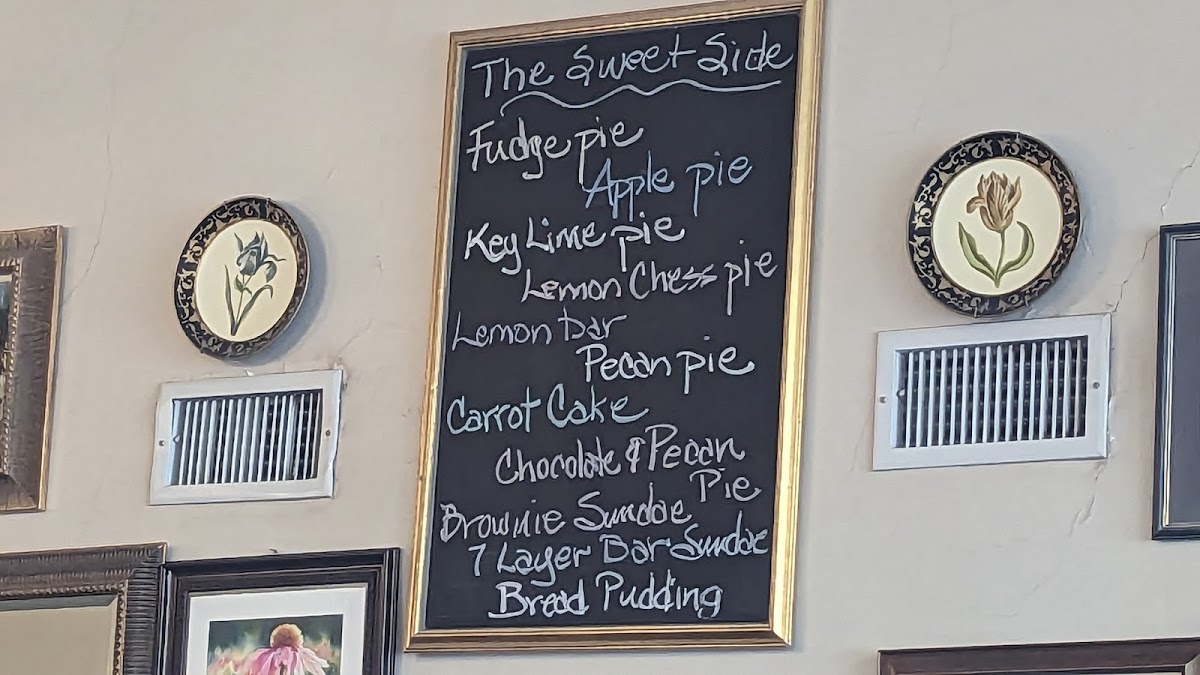 The Sweet Side
Fudge pie
Apple pie
Key Lime pie
Lemon Chess pie
Lemon Bar
Pecan pie
Carrot Cake
Chocolate & Pecan
Pie
Brownie Sundae
7 Layer Bar Sundae
Bread Pudding